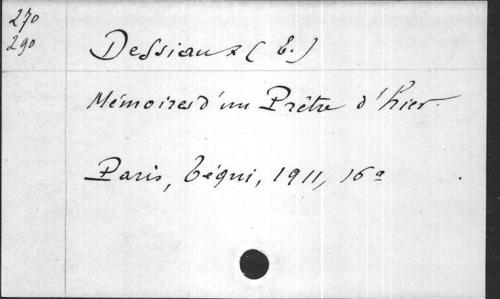 270
290
Dessiaux (E.)
Mémoires d'un Prêtre d'hier.
Paris, Téqui, 1911, 16º